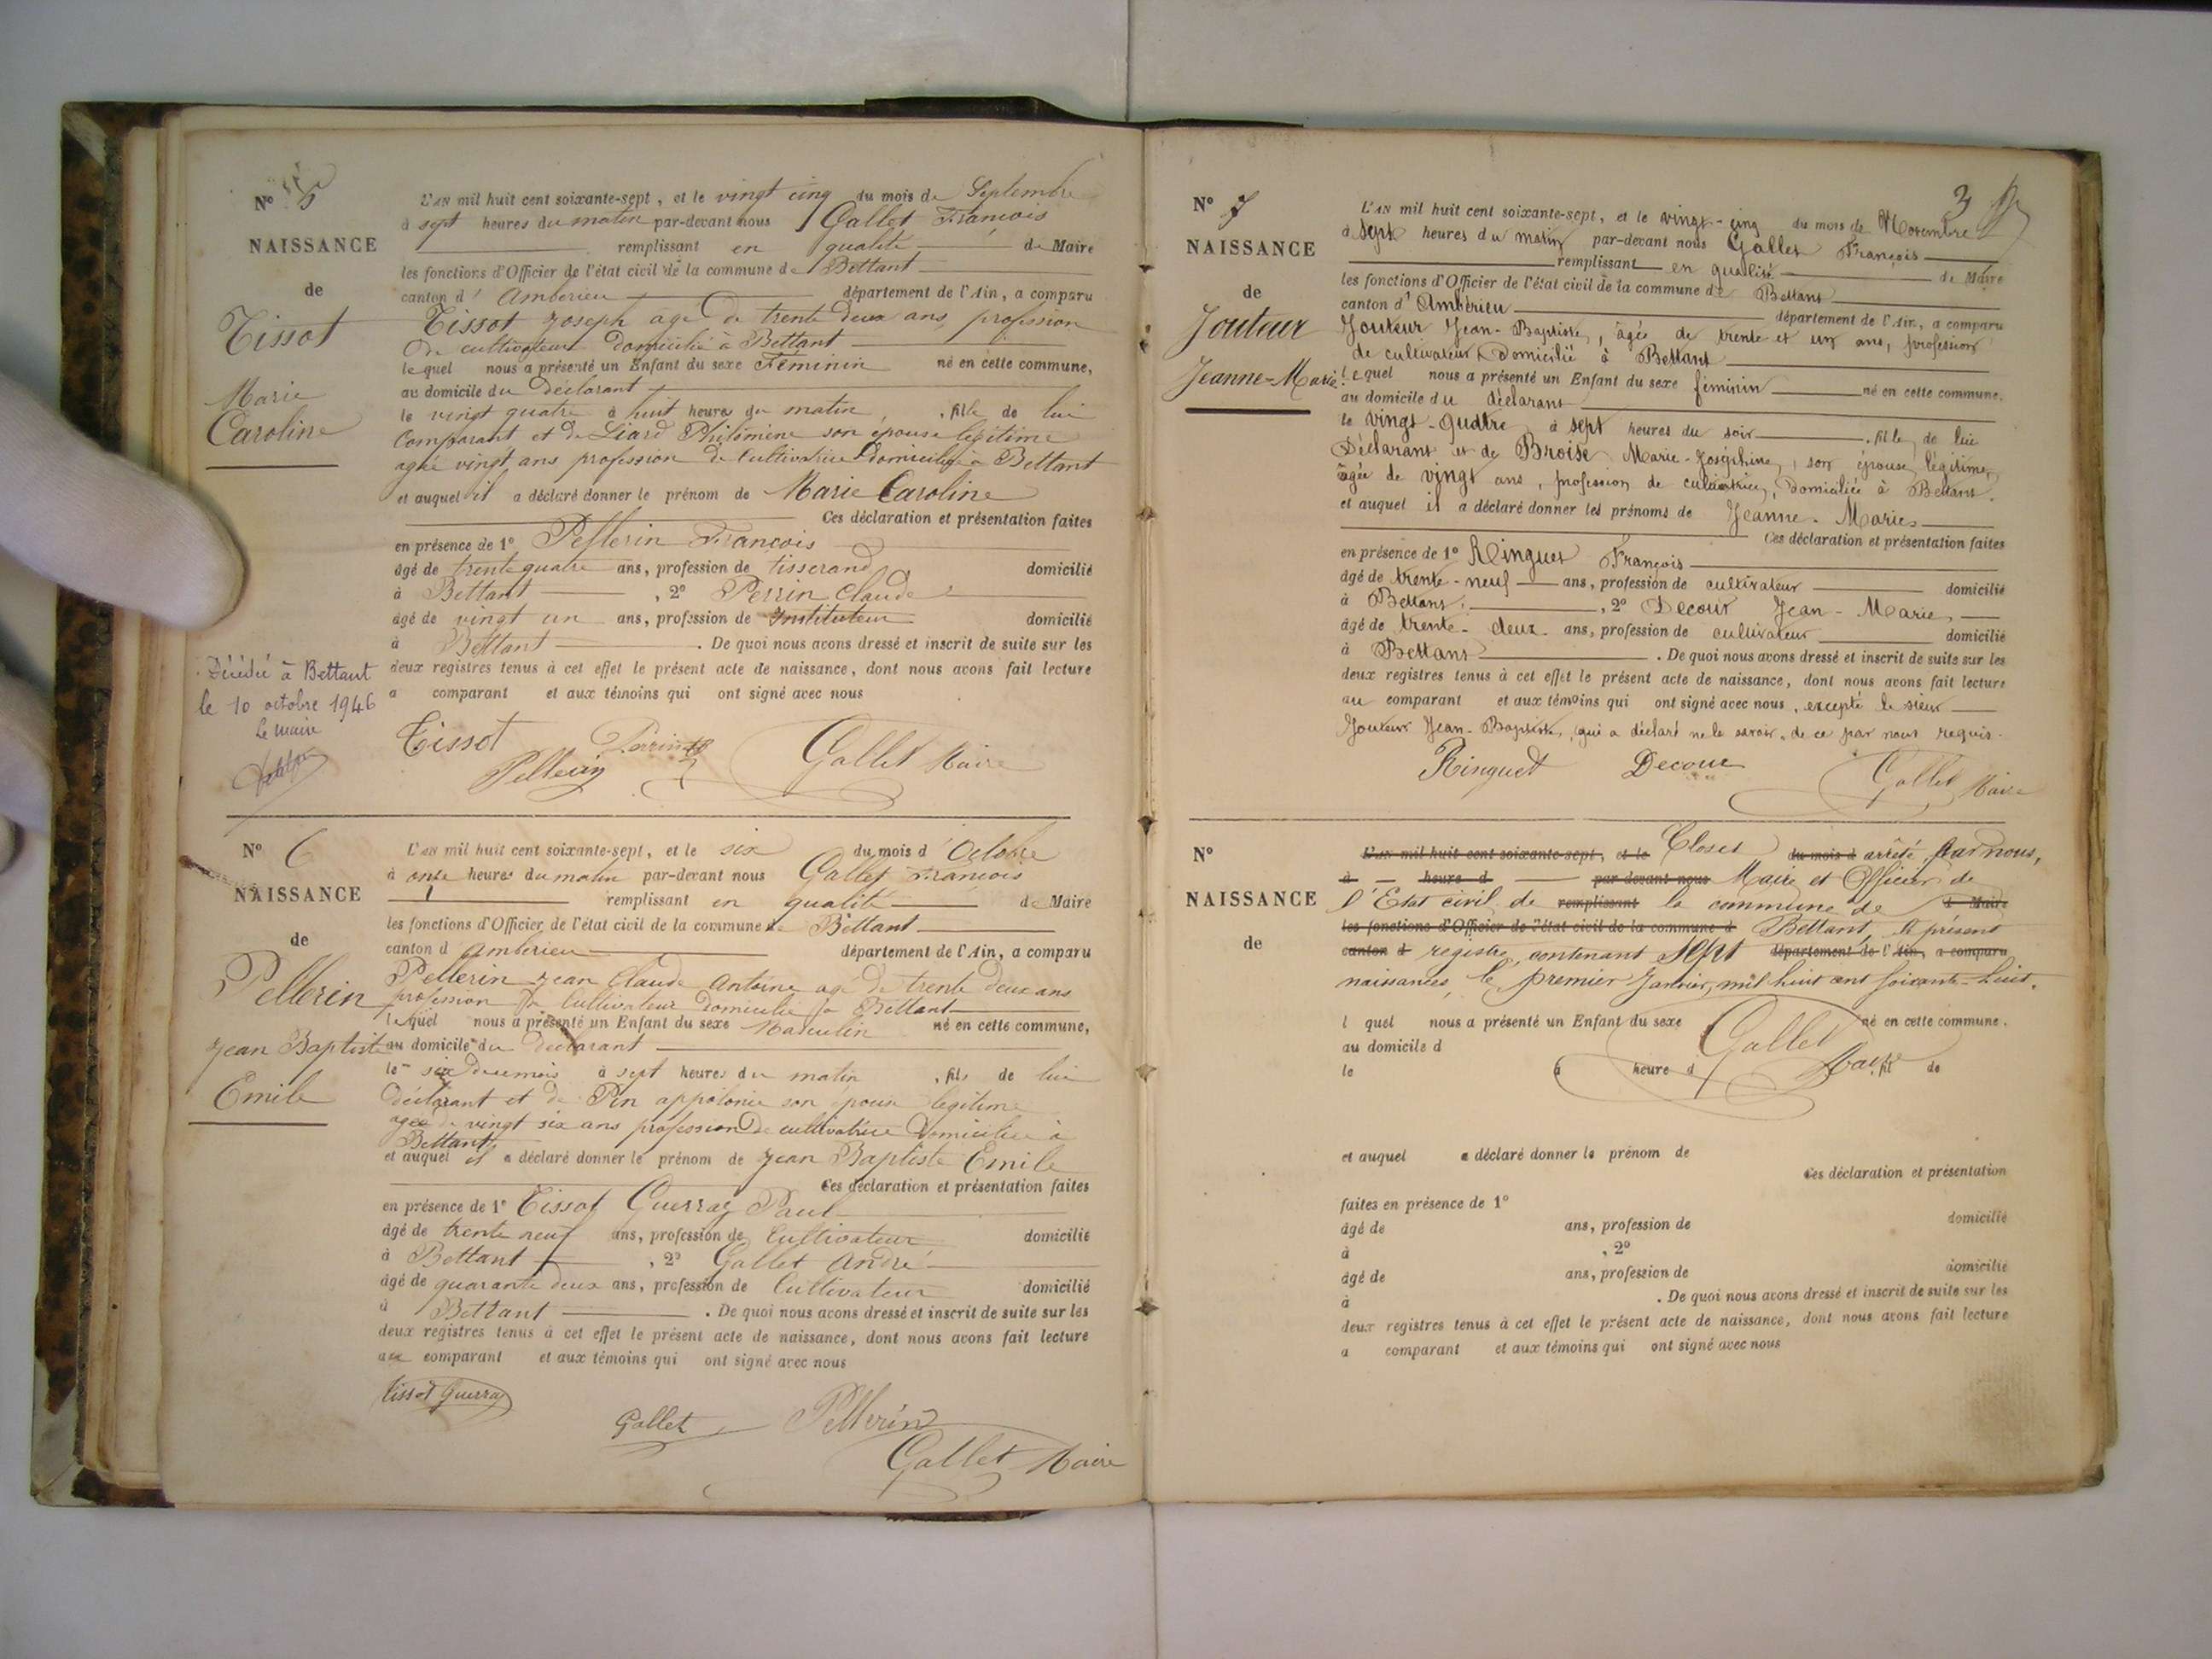 Nº 5
NAISSANCE
de
Tissot
Marie
Caroline
Décédé à Bettant
le 10 octobre 1946
Le maire
L'AN mil huit cent soixante-sept, et le vingt cinq du mois de Septembre
à sept heures du matin par-devant nous Gallet François
remplissant en qualité de Maire
les fonctions d'Officier de l'état civil de la commune de Bettant
canton d' Amberieu département de l'Ain, a comparu
Tissot Joseph agé de trente deux ans, profession
de cultivateur domicilié à Bettant
lequel nous a présenté un Enfant du sexe Féminin né en cette commune,
au domicile du déclarant
le vingt quatre à huit heures du matin, fille de lui
Comparant et de Liard Philomène son épouse légitime
agée vingt ans profession de Cultivatrice domiciliée à Bettant
et auquel il a déclaré donner le prénom de Marie Caroline
Ces déclaration et présentation faites
en présence de 1º Pellerin François
âgé de trente quatre ans, profession de tisserand domicilié
à Bettant, 2º Perrin Claude
âgé de vingt un ans, profession de Instituteur domicilié
à Bettant. De quoi nous avons dressé et inscrit de suite sur les
deux registres tenus à cet effet le présent acte de naissance, dont nous avons fait lecture
a comparant et aux témoins qui ont signé avec nous
Tissot Perrin
Pellerin Gallet Maire
Nº 6
NAISSANCE
de
Pellerin
Jean Baptiste
Emile
L'AN mil huit cent soixante-sept, et le six du mois d'Octobre
à onze heures du matin par-devant nous Gallet François
remplissant en qualité de Maire
les fonctions d'Officier de l'état civil de la commune de Bettant
canton d Amberieu département de l'Ain, a comparu
Pellerin Jean Claude Antoine agé de trente deux ans
profession de Cultivateur domicilié à Bettant
lequel nous a présenté un Enfant du sexe Masculin né en cette commune,
au domicile du déclarant
le six du mois à sept heures du matin, fils de lui
déclarant et de Pin appolonie son épouse légitime
agée de vingt six ans profession de cultivatrice domiciliée à
Bettant
et auquel il a déclaré donner le prénom de Jean Baptiste Emile
Ces déclaration et présentation faites
en présence de 1º Tissot Guerraz Paul
âgé de trente neuf ans, profession de Cultivateur domicilié
à Bettant, 2º Gallet André
âgé de quarante deux ans, profession de Cultivateur domicilié
à Bettant. De quoi nous avons dressé et inscrit de suite sur les
deux registres tenus à cet effet le présent acte de naissance, dont nous avons fait lecture
au comparant et aux témoins qui ont signé avec nous
Tissot Guerraz
Gallet Pellerin
Gallet Maire
3
Nº 7
NAISSANCE
de
Jouteur
Jeanne-Marie
L'AN mil huit cent soixante-sept, et le vingt-cinq du mois de Novembre
à sept heures du matin par-devant nous Gallet François
remplissant en qualité de Maire
les fonctions d'Officier de l'état civil de la commune de Bettant
canton d' Ambérieu département de l'Ain, a comparu
Jouteur Jean-Baptiste, âgée de trente et un ans, profession
de cultivateur, Domicilié à Bettant
lequel nous a présenté un Enfant du sexe féminin né en cette commune.
au domicile du déclarant
le vingt-quatre à sept heures du soir, fille, de lui
Déclarant et de Broise Marie-Joséphine, son épouse légitime,
âgée de vingt ans, profession de cultivatrice, Domiciliée à Bettant.
et auquel il a déclaré donner les prénoms de Jeanne-Marie
Ces déclaration et présentation faites
en présence de 1º Ringuet François
âgé de trente-neuf ans, profession de cultivateur domicilié
à Bettant, 2º Decour Jean-Marie,
âgé de trente-deux ans, profession de cultivateur domicilié
à Bettant. De quoi nous avons dressé et inscrit de suite sur les
deux registres tenus à cet effet le présent acte de naissance, dont nous avons fait lecture
au comparant et aux témoins qui ont signé avec nous, excepté le sieur
Jouteur Jean-Baptiste, qui a déclaré ne le savoir, de ce par nous requis.
Ringuet Decour Gallet Maire
Nº
NAISSANCE
de
L'AN mil huit cent soixante-sept, et le Closes du mois d arrêté par nous,
à heure d par-devant nous Maire et Officier de
l'Etat civil de remplissant la commune de d Maire
les fonctions d'Officier de l'état civil de la commune d Bettant, le présent
canton d registre, contenant sept département de l'Ain, a comparu
naissances, le premier Janvier, mil huit cent soixante-huit.
l quel nous a présenté un Enfant du sexe né en cette commune.
au domicile d Gallet
le à heure d Maire fil de
et auquel a déclaré donner le prénom de
Ces déclaration et présentation
faites en présence de 1º
âgé de ans, profession de domicilié
à , 2º
âgé de ans, profession de domicilié
à . De quoi nous avons dressé et inscrit de suite sur les
deux registres tenus à cet effet le présent acte de naissance, dont nous avons fait lecture
a comparant et aux témoins qui ont signé avec nous